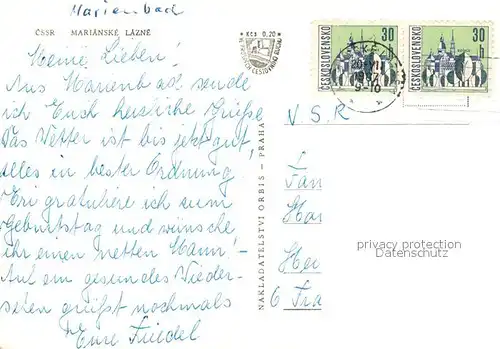 Marienbad
ČSSR MARIÁNSKÉ LÁZNĚ
Meine Lieben!
Aus Marienbad sende
ich Euch herzliche Grüße
Das Wetter ist bis jetzt gut,
alles in bester Ordnung.
Eri gratuliere ich zum
Geburtstag und wünsche
ihr einen netten Mann! –
Auf ein gesundes Wieder-
sehen grüßt nochmals
Eure Friedel
Kčs 0,20
NAKLADATELSTVÍ ORBIS - PRAHA
ČESKOSLOVENSKO 30 h
ČESKOSLOVENSKO 30 h
9-10
V S R
Fam
Ha
He
6 Fra
privacy protection
Datenschutz